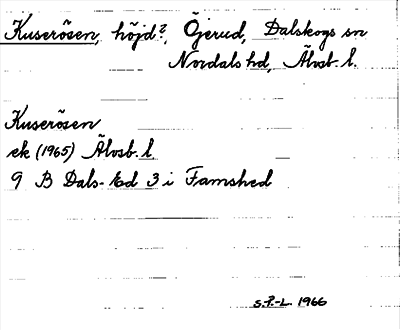 Kuserösen, höjd?, Öjerud, Dalskogs sn
Nordals hd, Älvsb. l.
Kuserösen
ek (1965) Älvsb. l
9 B Dals-Ed 3 i Famshed
S.P.-L. 1966